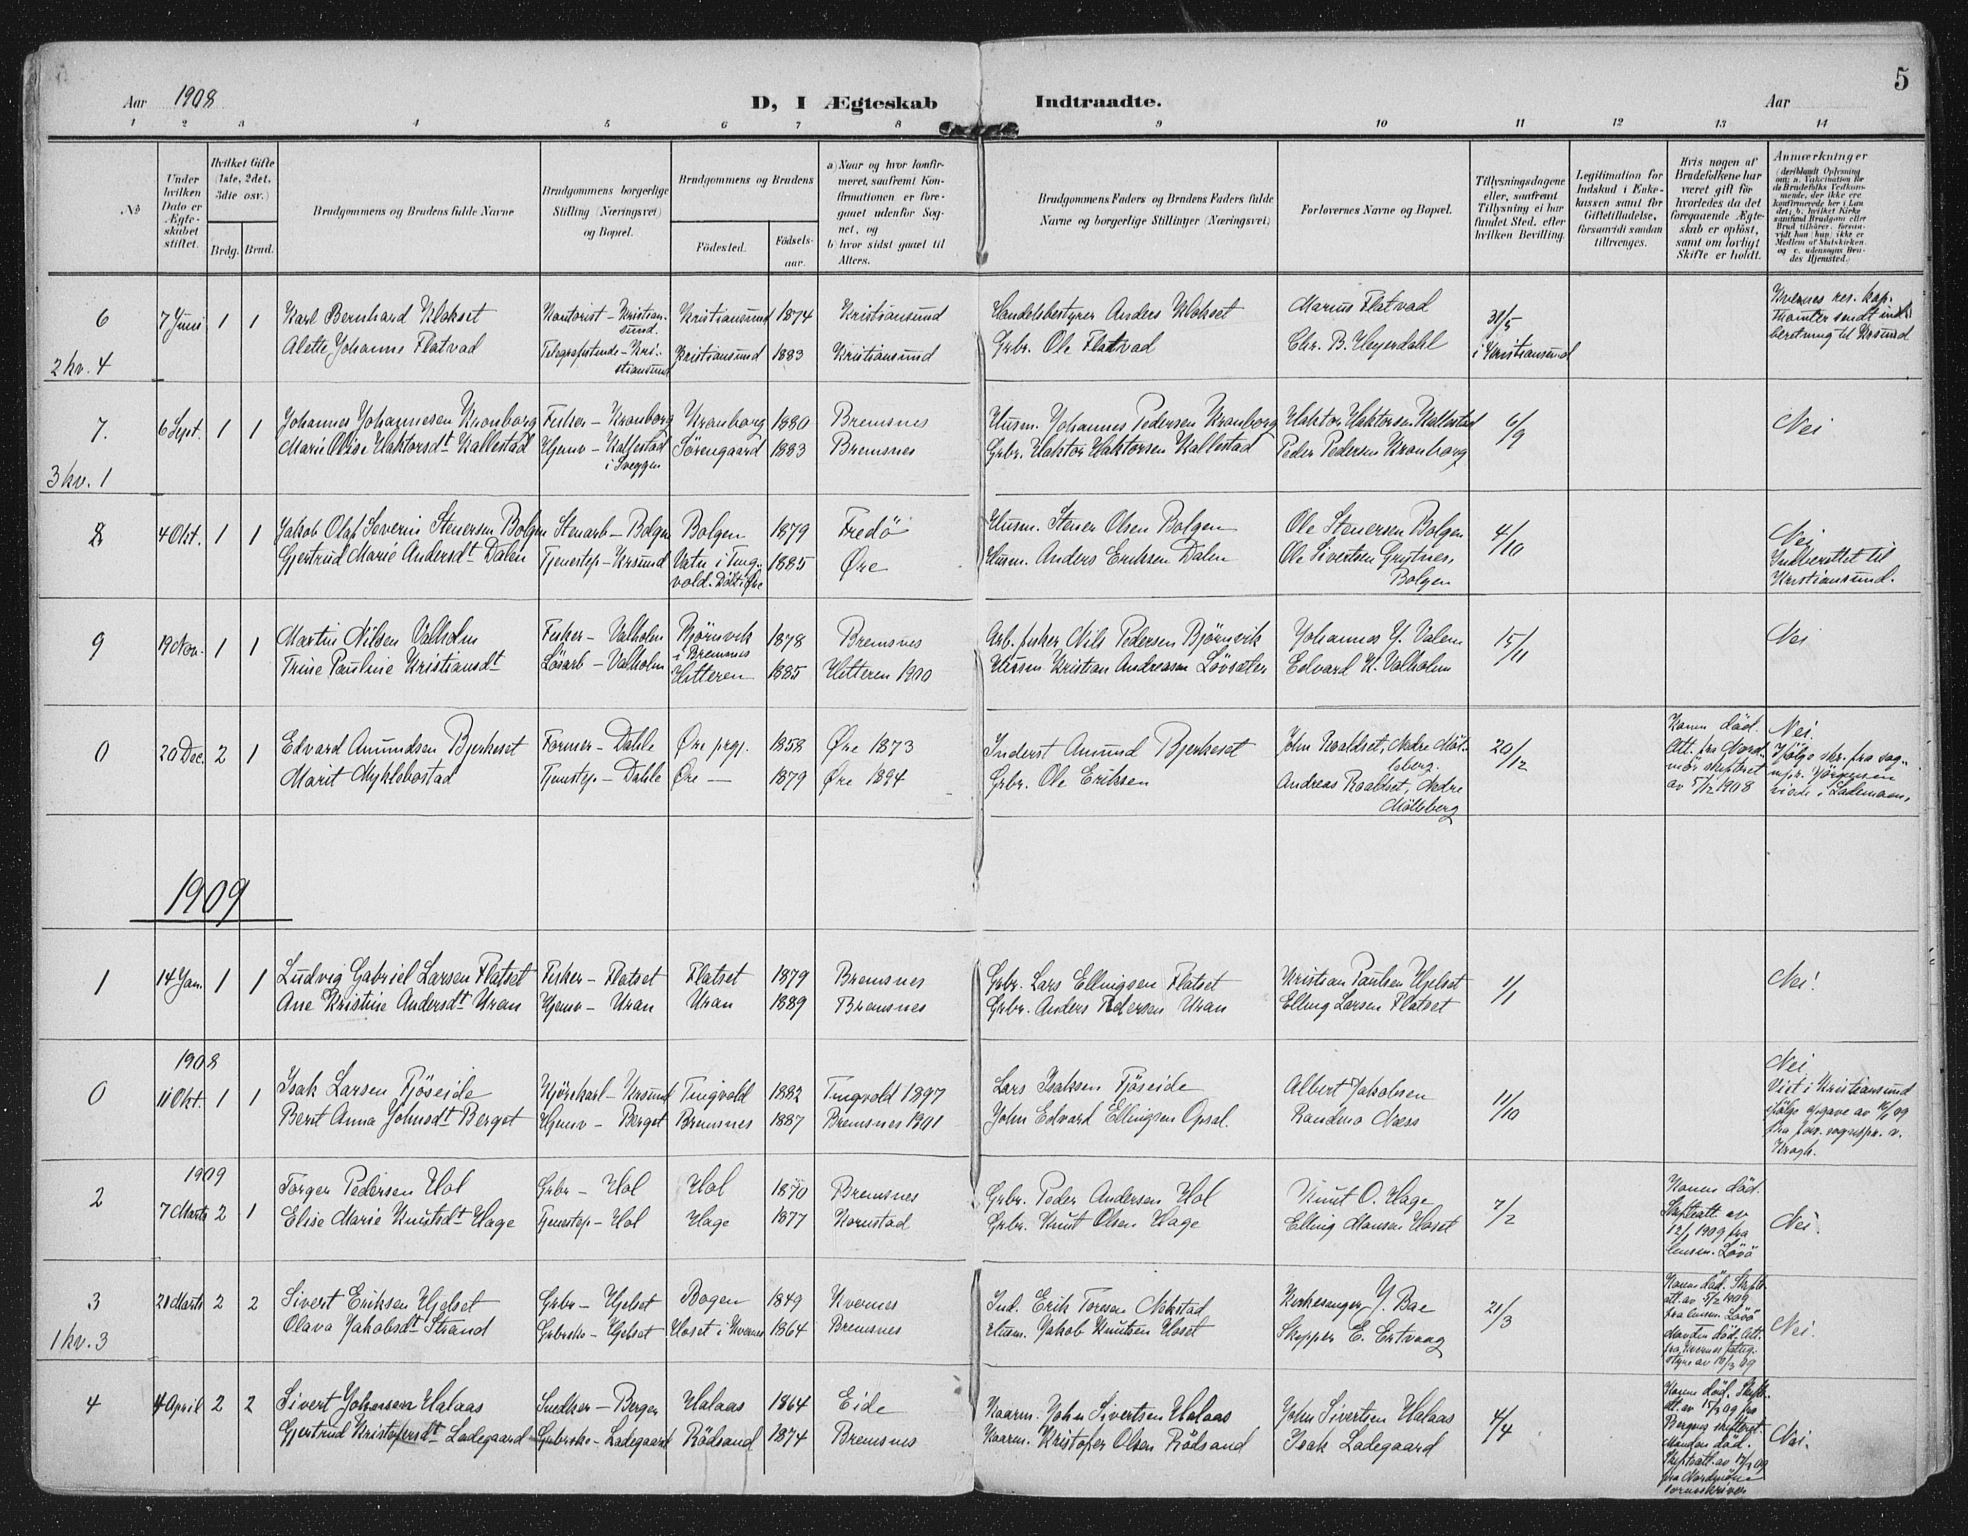 Aar 1908
D, I Ægteskab Indtraadte.
Aar
5
1 2 3 4 5 6 7 8 9 10 11 12 13 14
No
Under hvilken Dato er Ægteskabet stiftet.
Hvilket Gifte (1ste, 2det, 3die osv.)
Brdg. Brud.
Brudgommens og Brudens fulde Navne
Brudgommens borgerlige Stilling (Næringsvei) og Bopæl.
Brudgommens og Brudens
Fødested.
Fødselsaar.
a) Naar og hvor konfirmeret, saafremt Konfirmationen er foregaaet udenfor Sognet, og
b) hvor sidst gaaet til Alters.
Brudgommens Faders og Brudens Faders fulde Navne og borgerlige Stillinger (Næringsvei)
Forlovernes Navne og Bopæl.
Tillysningsdagene eller, saafremt Tillysning ei har fundet Sted, efter hvilken Bevilling.
Legitimation for Indskud i Enkekassen samt for Giftetilladelse, forsaavidt saadan tiltrænges.
Hvis nogen af Brudefolkene har været gift før hvorledes da det foregaaende Ægteskab er opløst, samt om lovligt Skifte er holdt.
Anmærkninger
6 7 Juni 1 1 Karl Bernhard Klokset Kontorist - Kristiansund. Kristiansund 1874 Kristiansund Handelsbestyrer Anders Klokset Marius Flatvad 31/5 i Kristiansund Kvernes res. kap.
Alette Johanne Flatvad Telegrafistinde - Kristiansund Kristiansund 1883 Kristiansund Grbr. Ole Flatvad Chr. B. Heyerdahl
2 kv. 4
7. 6 Sept. 1 1 Johannes Johannesen Kronborg Fisker - Kronborg Kronborg 1880 Bremsnes Husm. Johannes Pedersen Kronborg Haktor Haktorsen Kallestad 6/9 Nei
Marie Olise Haktorsdt Kallestad Hjemv - Kallestad i Sveggen Sørengaard 1883 Bremsnes Grbr. Haktor Haktorsen Kallestad Peder Pedersen Kronborg
3 kv. 1
8 4 Okt. 1 1 Jakob Olaf Severin Stenersen Bolgen Stenarb - Bolgen Bolgen 1879 Fredø Husm. Stener Olsen Bolgen Ole Stenersen Bolgen 4/10 Nei
Gjertrud Marie Andersdt Dalen Tjenestep - Krsund 1885 Øre Husm. Anders Eriksen Dalen Ole Sivertsen Grytnes, Bolgen Indberettet til Kristiansund.
9 19 Nov. 1 1 Martin Nilsen Valholm Fisker - Valholm Bjørnvik i Bremsnes 1878 Bremsnes Arb. fisker Nils Pedersen Bjørnvik Johannes J. Valen 15/11 Nei
Trine Pauline Kristiansdt Løsarb - Valholm Hitteren 1885 Hitteren 1900 Husm Kristian Andreasen Løvsæter Edvard K. Valholm
0 20 Dec. 2 1 Edvard Amundsen Bjerkeset Former - Dahle Øre prgj. 1858 Øre 1873 Inderst Amund Bjerkeset John Roaldset, Nedre Mølsberg. 20/12 Konen død. Att. fra Nordmør skifteret av 5/12 1908 Nei.
Marit Myklebostad Tjenestep - Dahle Øre — 1879 Øre 1894 Grbr. Ole Eriksen Andreas Roaldset, Nedre Mølsberg
1909
1 14 Jan. 1 1 Ludvig Gabriel Larsen Flatset Fisker - Flatset Flatset 1879 Bremsnes Grbr. Lars Ellingsen Flatset Kristian Paulsen Hjelset 1/1 Nei!
Ane Kristine Andersdt Uran Hjemv - Uran Uran 1889 Bremsnes Grbr. Anders Pedersen Uran Elling Larsen Flatset
1908
0 11 Okt. 1 1 Isak Larsen Tjøseide Kjørekarl - Krsund Tingvold 1882 Tingvold 1897 Lars Isaksen Tjøseide Albert Jakobsen 11/10 Nei
Berit Anna Johnsdt Berget Hjemv - Berget Bremsnes 1887 Bremsnes 1901 John Edvard Ellingsen Opsal. Randmo Næss Viet i Kristiansund ifølge opgave av 16/1 09
1909
2 7 Marts 2 1 Torger Pedersen Hol Grbr - Hol Hol 1870 Bremsnes Grbr. Peder Andersen Hol Knut O. Hage 7/2 Konen død. Skifteatt. av 12/1 1909 fra lensm. Løvø Nei.
Elise Marie Knutsdt Hage Tjenestep - Hol Hage 1877 Kornstad Grbr. Knut Olsen Hage Elling Monsen Hoset
3 21 Marts 2 2 Sivert Eriksen Hjelset Grbr - Hjelset Bogen 1849 Kvernes Ind. Erik Toresen Nakstad Kirkesanger J. Bae 21/3 Konen død. Skifteatt. av 5/2 1909 fra lensm. Løvø Nei.
Olava Jakobsdt Strand Grbrske - Hjelset Hoset i Kvernes 1864 Bremsnes Husm. Jakob Knutsen Hoset Skipper E. Ertvaag Manden død. Att. fra Kvernes fattigstyre av 18/3 09
1 kv. 3
4 4 April 2 2 Sivert Johansen Halaas Snedker - Bergen Halaas 1864 Eide Kaarm. John Sivertsen Halaas John Sivertsen Halaas 4/4 Konen død. Skifteatt. av 15/3 09 fra Bergens skifteret. Nei.
Gjertrud Kristofersdt Ladegaard Grbrske - Ladegaard Rødsand 1874 Bremsnes Kaarm. Kristofer Olsen Rødsand Isak Ladegaard Manden død. Skifteatt. av 17/3 09 fra Nordmøre sorenskriver